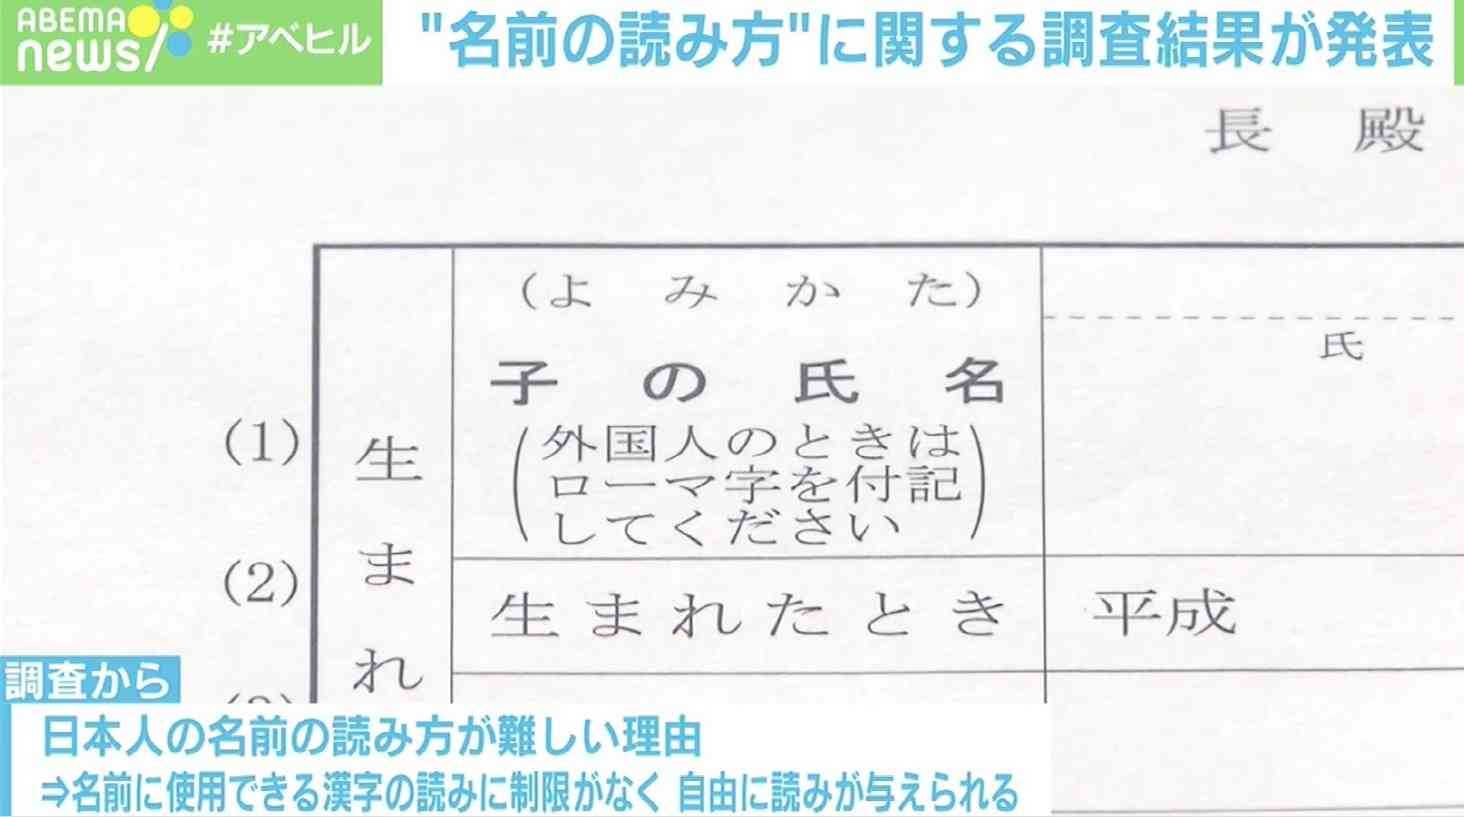 ABEMA
news/
#アベヒル
"名前の読み方"に関する調査結果が発表
長 殿
(よみかた)
氏
子の氏名
(1)
外国人のときは
ローマ字を付記
してください
生まれ
(2)
生まれたとき
平成
調査から
日本人の名前の読み方が難しい理由
⇒名前に使用できる漢字の読みに制限がなく 自由に読みが与えられる